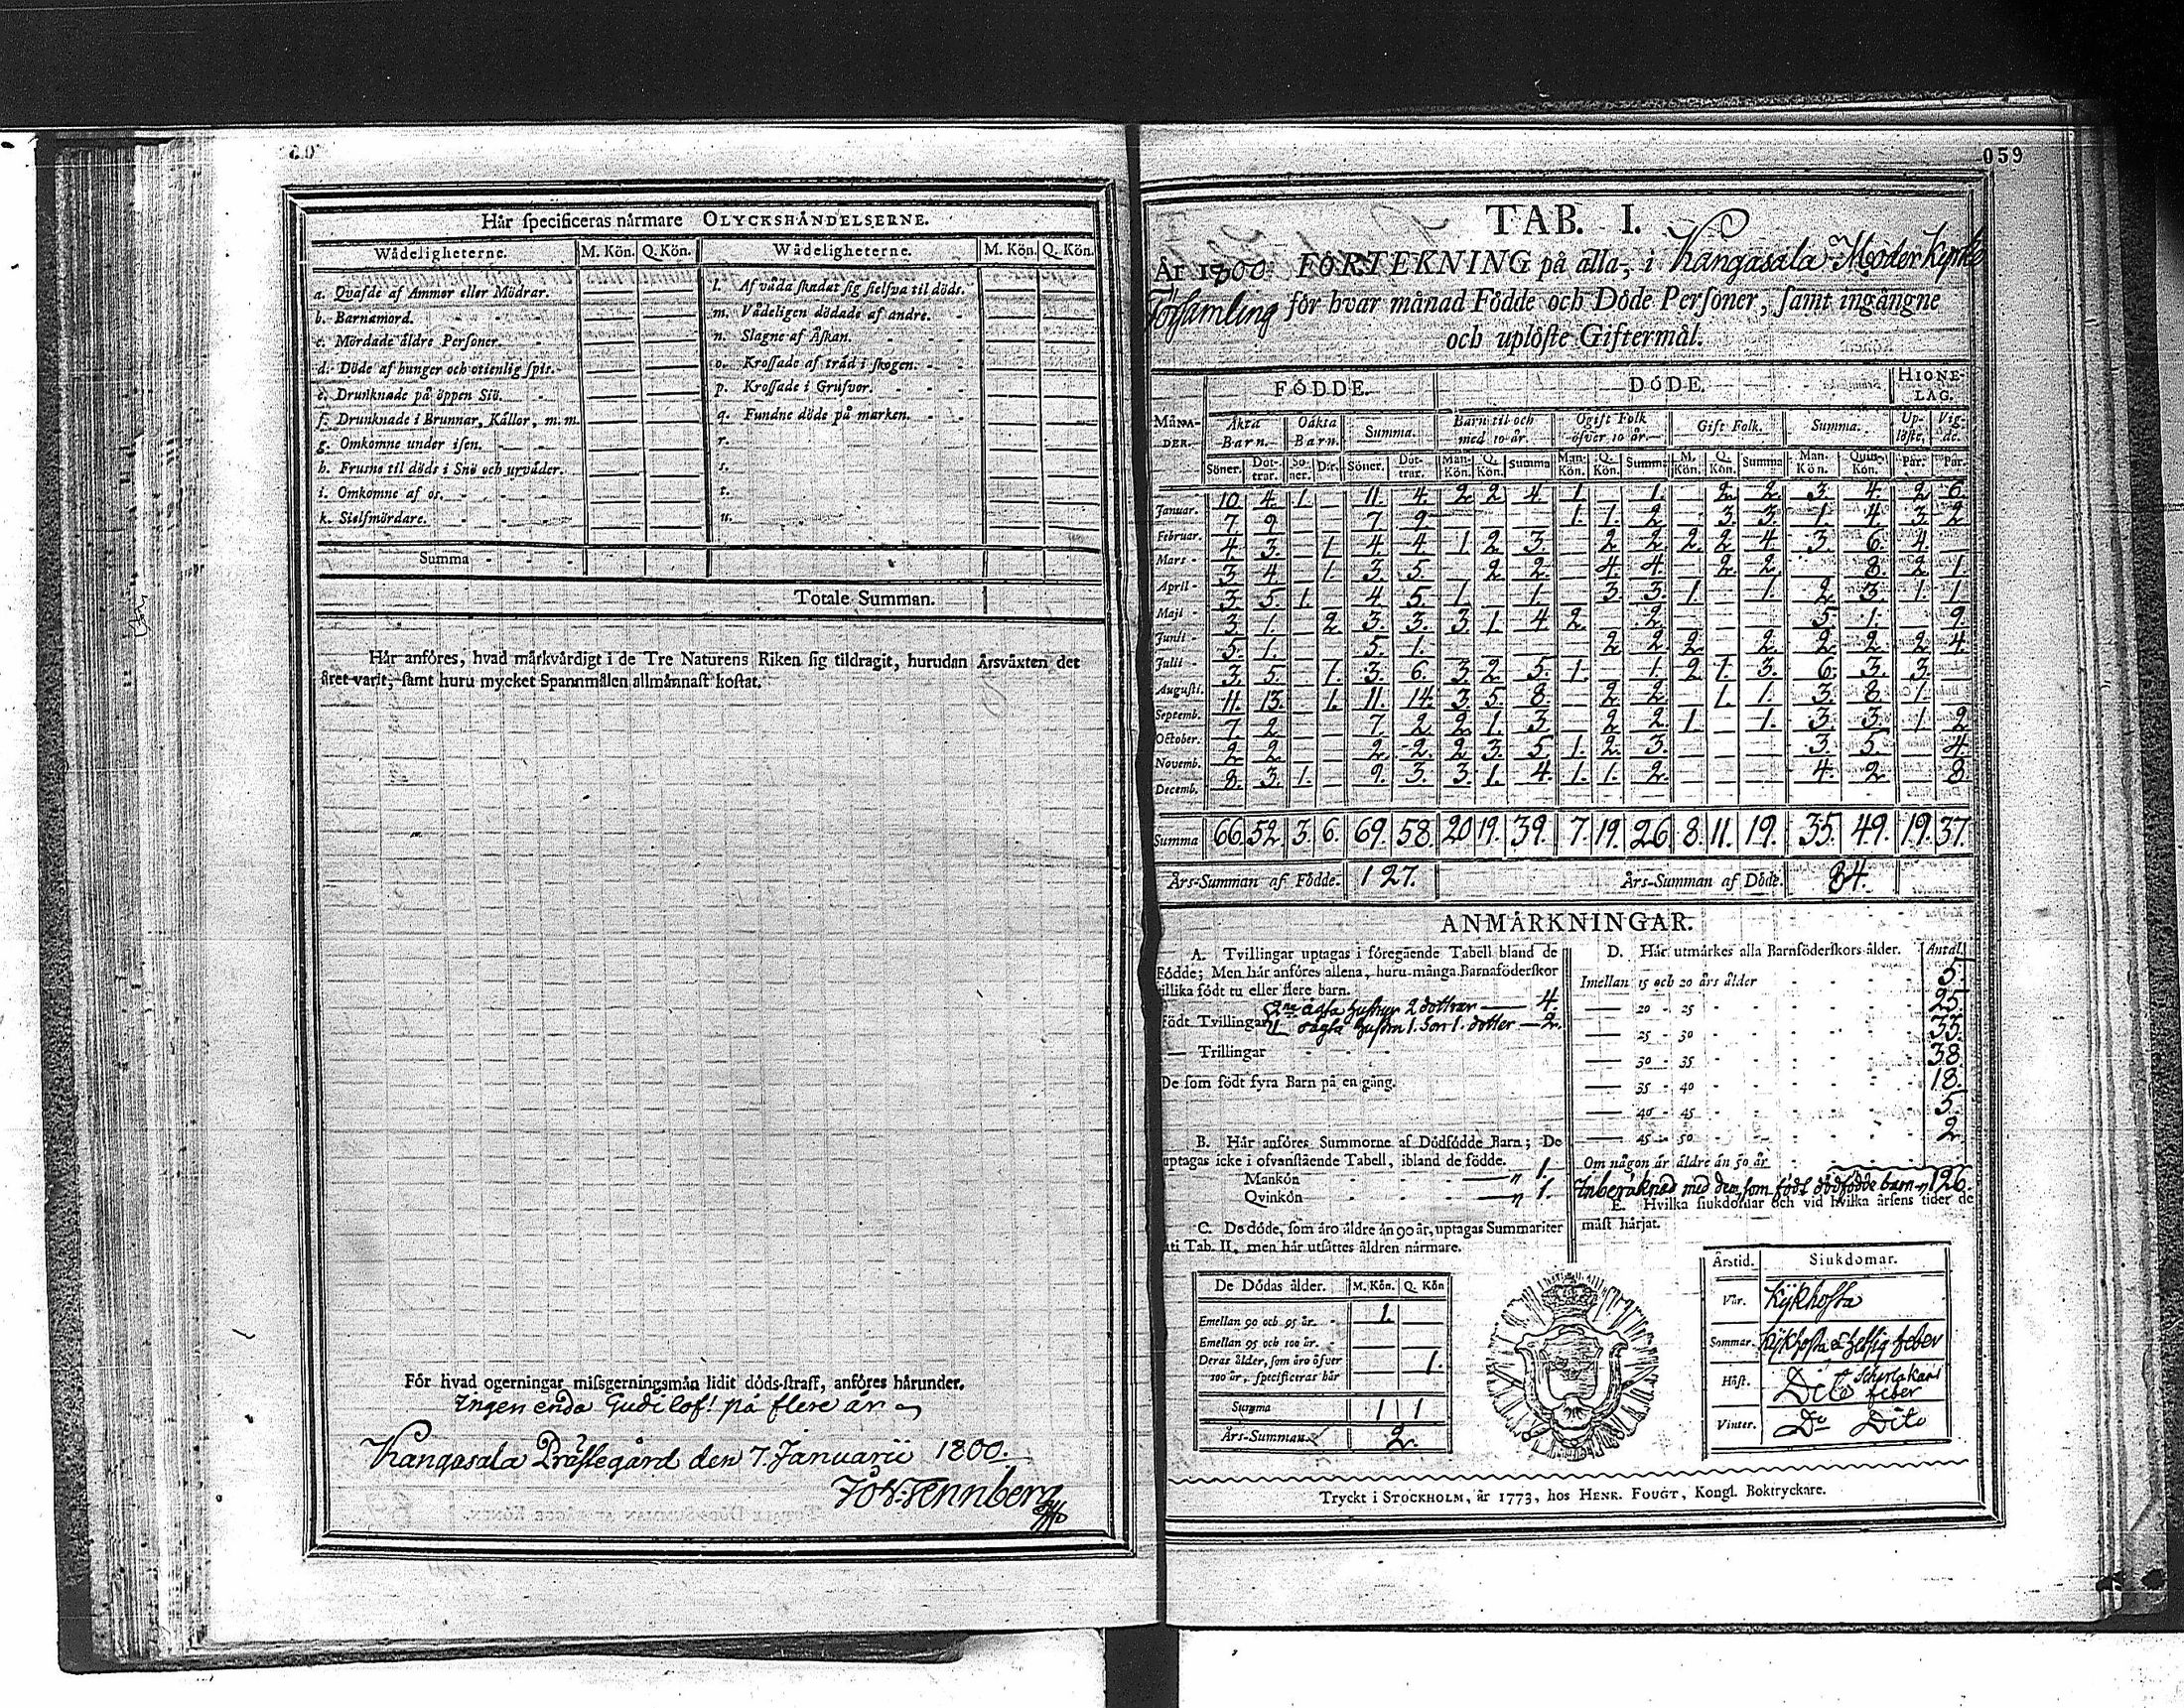 Här specificeras närmare OLYCKSHÄNDELSERNE.
Wådeligheterne. M. Kön. Q. Kön. Wådeligheterne. M. Kön. Q. Kön.
a. Qvafde af Ammor eller Mödrar.
b. Barnamord.
c. Mördade äldre Personer.
d. Döde af hunger och otienlig spis.
e. Drunknade på öppen Siö.
f. Drunknade i Brunnar, Källor, m. m.
g. Omkomne under isen.
h. Frusne til döds i Snö och urväder.
i. Omkomne af os.
k. Sielfmördare.
l. Af våda skadat sig sielfva til döds.
m. Vådeligen dödade af andre.
n. Slagne af Åskan.
o. Krossade af träd i skogen.
p. Krossade i Grufvor.
q. Fundne döde på marken.
r.
s.
t.
u.
Summa
Totale Summan.
Här anföres, hvad märkvärdigt i de Tre Naturens Riken sig tildragit, hurudan Årsväxten det
året varit, samt huru mycket Spannmålen allmännast kostat.
För hvad ogerningar missgerningsmän lidit döds-straff, anföres härunder.
Ingen enda Gudi lof! på flere år
Kangasala Prästegård den 7. Januarii 1800.
Joh: Tennberg
059
TAB. I.
År 1800. FÖRTEKNING på alla, i Kangasala Moder Kyrko
Församling för hvar månad Födde och Döde Personer, samt ingångne
och uplöste Giftermål.
MÅNADER. FÖDDE. DÖDE. HIONELAG.
Äkta Barn. Oäkta Barn. Summa. Barn til och med 10 år. Ogift Folk öfver 10 år. Gift Folk. Summa. Uplöste. Vigde.
Söner. Döttrar. Söner. Dtr. Söner. Döttrar. Man-Kön. Q. Kön. Summa Man. Kön. Q. Kön. Summa M. Kön. Q. Kön. Summa Man. Kön. Quin-Kön. Par. Par.
Januar. 10. 4. 1. 11. 4. 2 2 4. 1. 1. 2. 2. 3. 4. 2 6.
Februar. 7. 9. 7. 9. 1. 1. 2. 3. 3. 1. 4. 3. 2
Mars - 4. 3. 1. 4. 4. 1. 2. 3. 2. 2. 2. 2. 4 3. 6. 4.
April - 3. 4. 1. 3. 5. 2. 2. 4. 4. 2. 2. 8. 2. 1.
Maji - 3. 5. 1. 4. 5. 1. 1. 3. 3. 1. 1. 2. 3. 1. 1.
Junii - 3. 1. 2. 3. 3. 3. 1. 4 2. 2. 5. 1. 9.
Julii - 5. 1. 5. 1. 2. 2. 2. 2. 2. 2. 2. 4.
Augusti. 3. 5. 1. 3. 6. 3. 2. 5. 1. 1. 2. 1. 3. 6. 3. 3.
Septemb. 11. 13. 1. 11. 14. 3. 5. 8. 2. 2. 1. 1. 3. 8. 1.
October. 7. 2. 7. 2. 2. 1. 3. 2. 2. 1. 1. 3. 3. 1. 2
Novemb. 2. 2. 2. 2. 2. 3. 5. 1. 2. 3. 3. 5. 4.
Decemb. 8. 3. 1. 9. 3. 3. 1. 4. 1. 1. 2. 4. 2. 8
Summa 66. 52. 3. 6. 69. 58. 20 19. 39. 7. 19. 26. 8. 11. 19. 35. 49. 19. 37.
Års-Summan af Födde. 127. Års-Summan af Döde. 84.
ANMÄRKNINGAR.
A. Tvillingar uptagas i föregående Tabell bland de
Födde; Men här anföres allena, huru många Barnaföderskor
tillika födt tu eller flere barn.
2ne ägta hustrur 2 döttrar — 4.
födt Tvillingar 1 oägta hustru 1. Son 1. dotter — 2.
— Trillingar
De som födt fyra Barn på en gång.
B. Här anföres Summorne af Dödfödde Barn; De
uptagas icke i ofvanstående Tabell, ibland de födde.
Mankön 1.
Qvinkön 1.
C. De döde, som äro äldre än 90 år, uptagas Summariter
uti Tab. II, men här utsättes åldren närmare.
De Dödas ålder. M. Kön. Q. Kön
Emellan 90 och 95 år. 1.
Emellan 95 och 100 år.
Deras ålder, som äro öfver 1.
100 år, specificeras här
Summa 1 1
Års-Summan 2.
D. Här utmärkes alla Barnföderskors ålder. Antal
Imellan 15 och 20 års ålder 5.
— 20 - 25 25.
— 25 - 30 33.
— 30 - 35 38.
— 35 - 40 18.
— 40 - 45 5.
— 45 - 50 2.
Om någon är äldre än 50 år
Inberäknad med dem som födt dödfödde barn 126.
E. Hvilka siukdomar och vid hvilka årsens tider de
mäst härjat.
Årstid. Siukdomar.
Vår. Kykhosta
Sommar. Kykhosta & hetsig feber
Höst. Dito Scharlakans feber
Vinter. Do Dito
Tryckt i STOCKHOLM, år 1773, hos HENR. FOUGT, Kongl. Boktryckare.